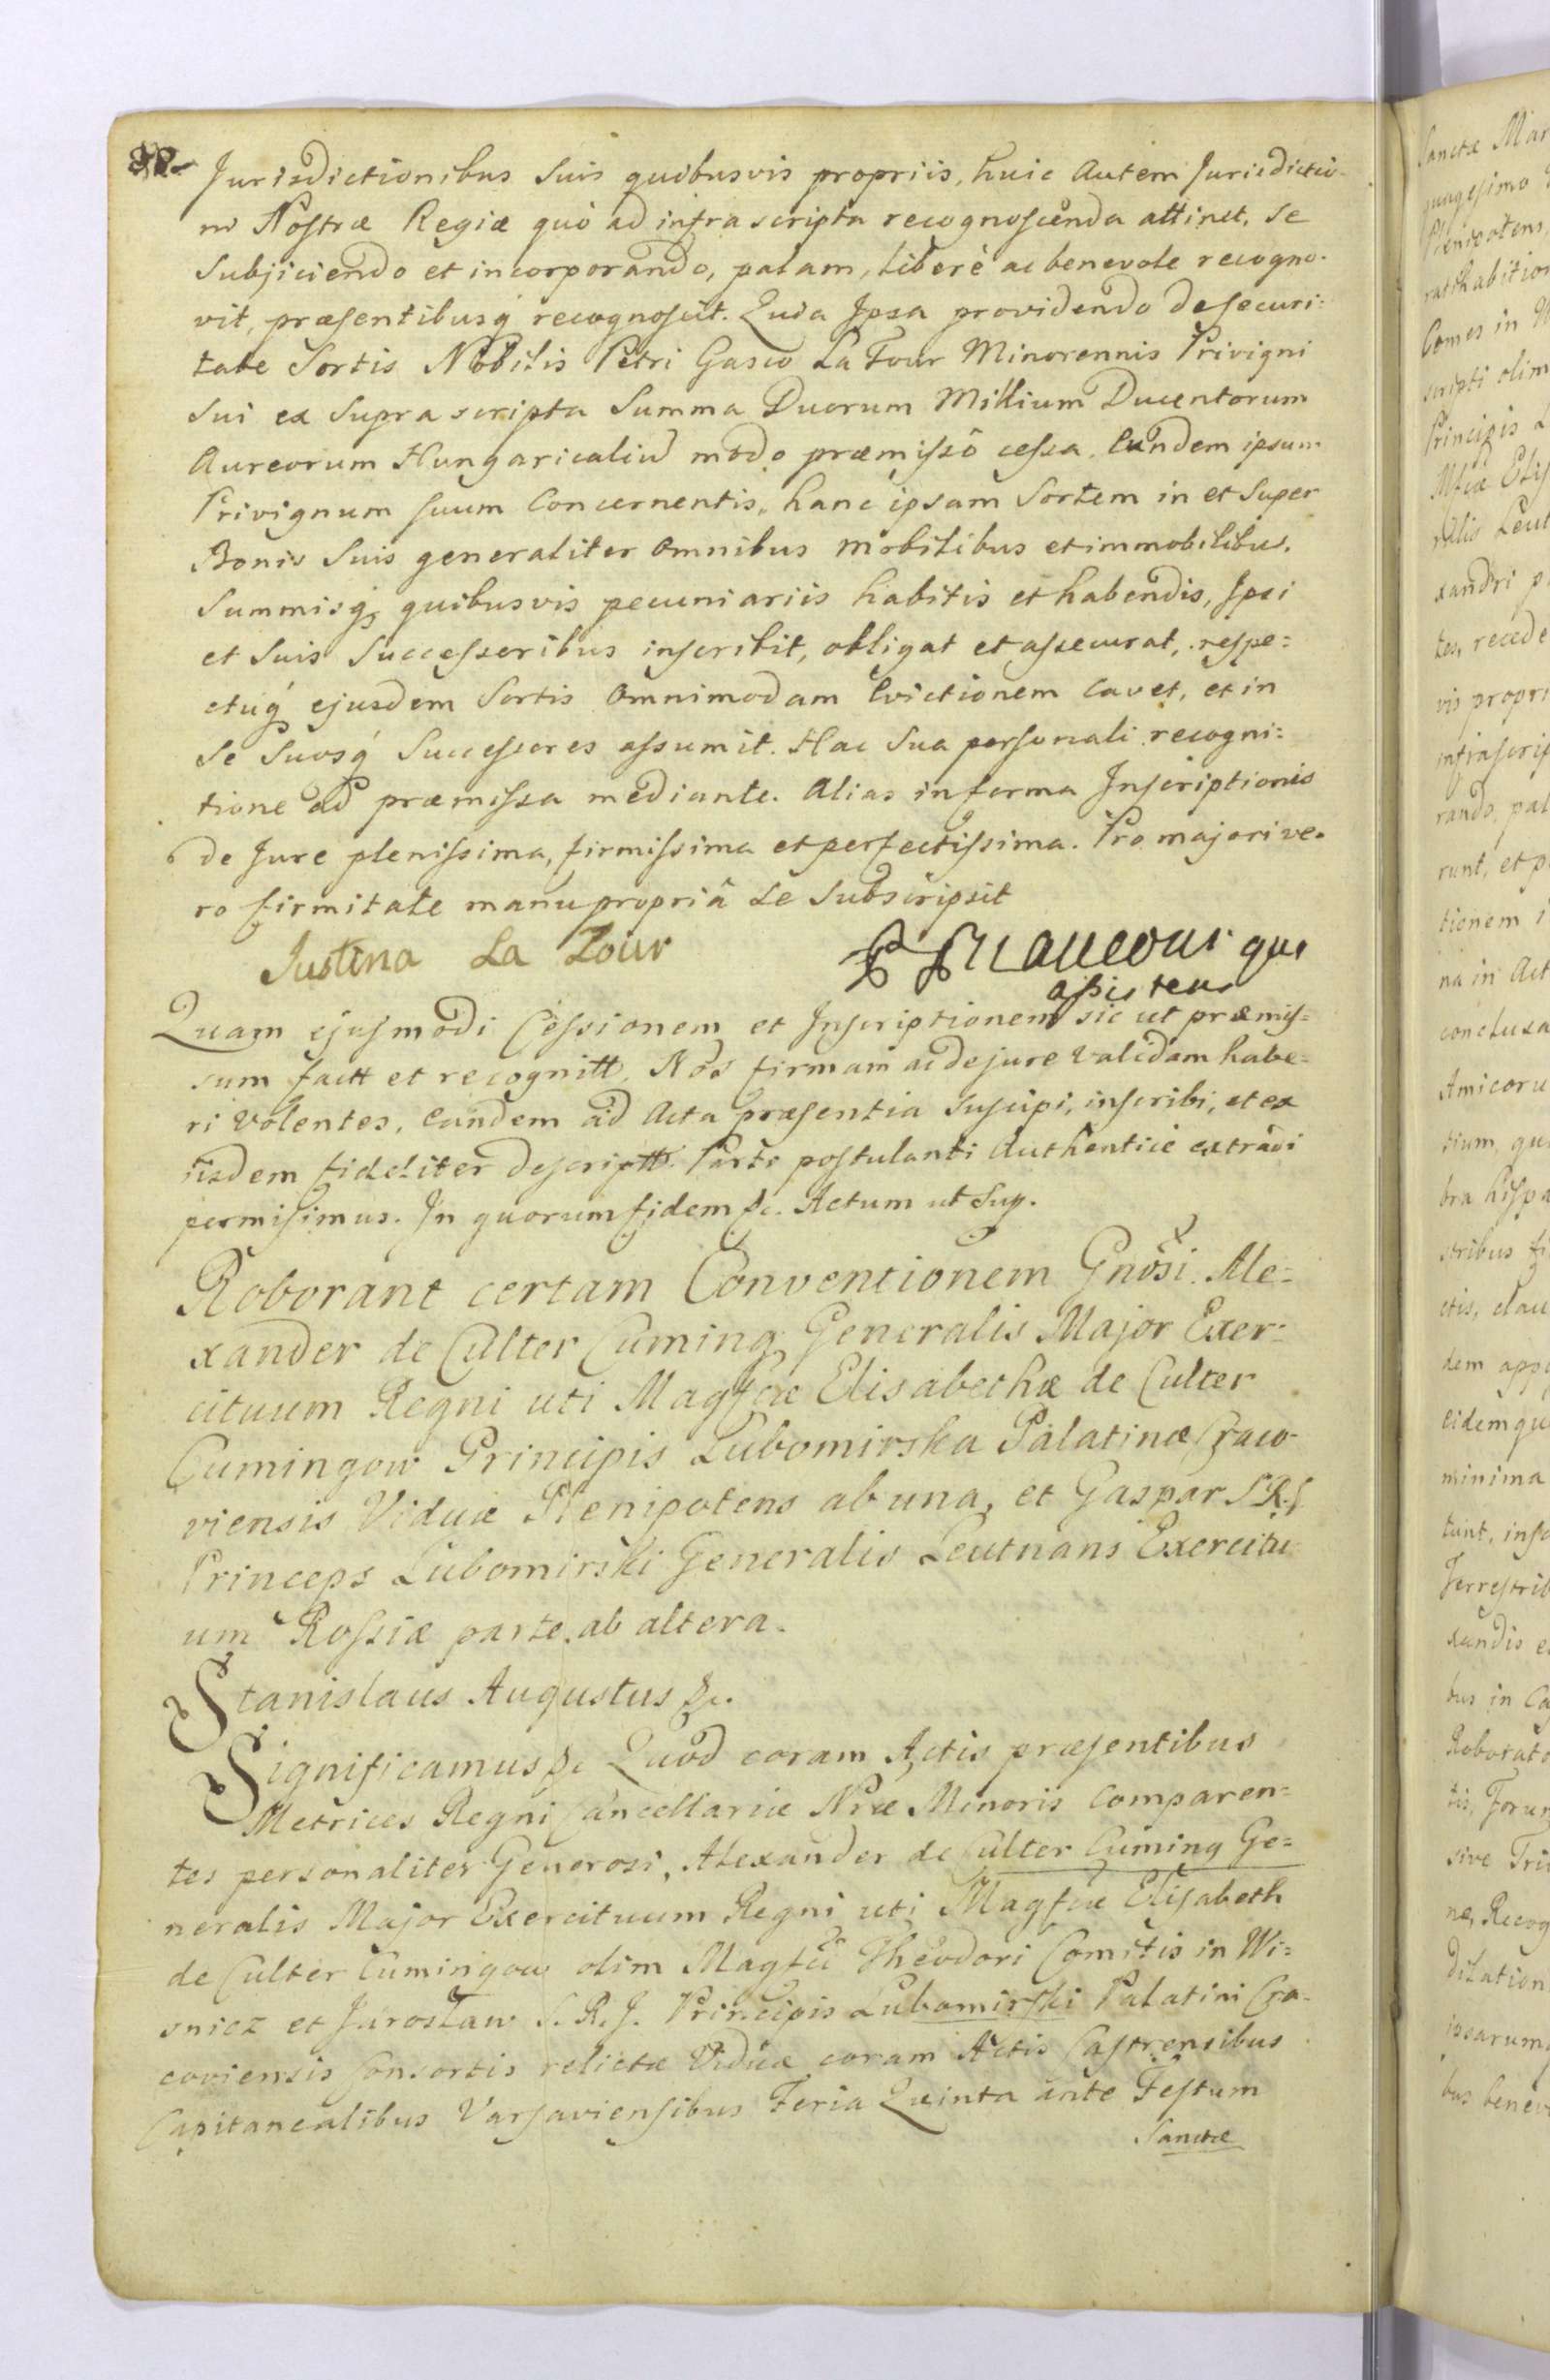 Jurisdictionibus Suis quibusvis propriis, huic Autem Jurisdictio-
ni Nostræ Regiæ quò ad infra scripta recognoscenda attinet, se
Subjiciendo et incorporando, palam, liberè ac benevole recogno-
vit, præsentibusq́ recognoscit. Quia Ipsa providendo de securi=
tate Sortis Nobilis Petri Gasco La Tour Minorennis Privigni
Sui ex Supra scripta Summa Duorum Millium Ducentorum
Aureorum Hungaricaliũ modo præmissô cessa, Eundem ipsum
Privignum suum Concernentis, hanc ipsam Sortem in et Super
Bonis Suis generaliter omnibus mobilibus et immobilibus,
Summisq́ quibusvis pecuniariis habitis et habendis, Ipsi
et Suis Successoribus inscribit, obligat et assecurat, respe=
ctuq́ ejusdem Sortis omnimodam Evictionem Cavet, et in
Se Suosq́ Successores assumit. Hac Sua personali recogni=
tione ad præmissa mediante. Alias in forma Inscriptionis
de Jure plenissima, firmissima et perfectissima. Pro majori ve-
ro firmitate manu propriâ Se Subscripsit
Justina La Tour
assistens
Quam ejusmodi Cessionem et Inscriptionem sic ut præmis=
sum factt et recognitt, Nos firmam ac de jure validam habe=
ri volentes, eandem ad Acta præsentia Suscipi, inscribi, et ex
iisdem fideliter descriptt Parte postulanti Authenticè extradi
permisimus. In quorum fidem &c. Actum ut Sup.
Roborant certam Conventionem Gnosi Ale=
xander de Culter Cuming Generalis Major Exer=
cituum Regni uti Magfcæ Elisabethæ de Culter
Cumingow Principis Lubomirska Palatinæ Craco-
viensis Viduæ Plenipotens ab una, et Gaspar S.R.I.
Princeps Lubomirski Generalis Leutnans Exercitu-
um Rossiæ parte ab altera.
Stanislaus Augustus &c.
Significamus &c Quod coram Actis præsentibus
Metrices Regni Cancellariæ Nræ Minoris Comparen=
tes personaliter Generosi, Alexander de Culter Cuming Ge=
neralis Major Exercituum Regni uti Magfcæ Elisabeth
de Culter Cumingow olim Magfci Theodori Comitis in Wi=
snicz et Jarosław S. R. J. Principis Lubomirski Palatini Cra-
coviensis Consortis relictæ Viduæ coram Actis Castrensibus
Capitanealibus Varsaviensibus Feria Quinta ante Festum
Sanctæ